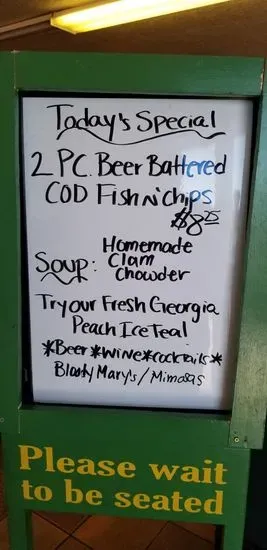 Today's Special
2 PC. Beer Battered
COD Fish n' Chips
$8.25
Homemade
Soup: Clam
Chowder
Try our Fresh Georgia
Peach Ice Tea!
*Beer*wine*cocktails*
Bloody Mary's/Mimosas
Please wait
to be seated